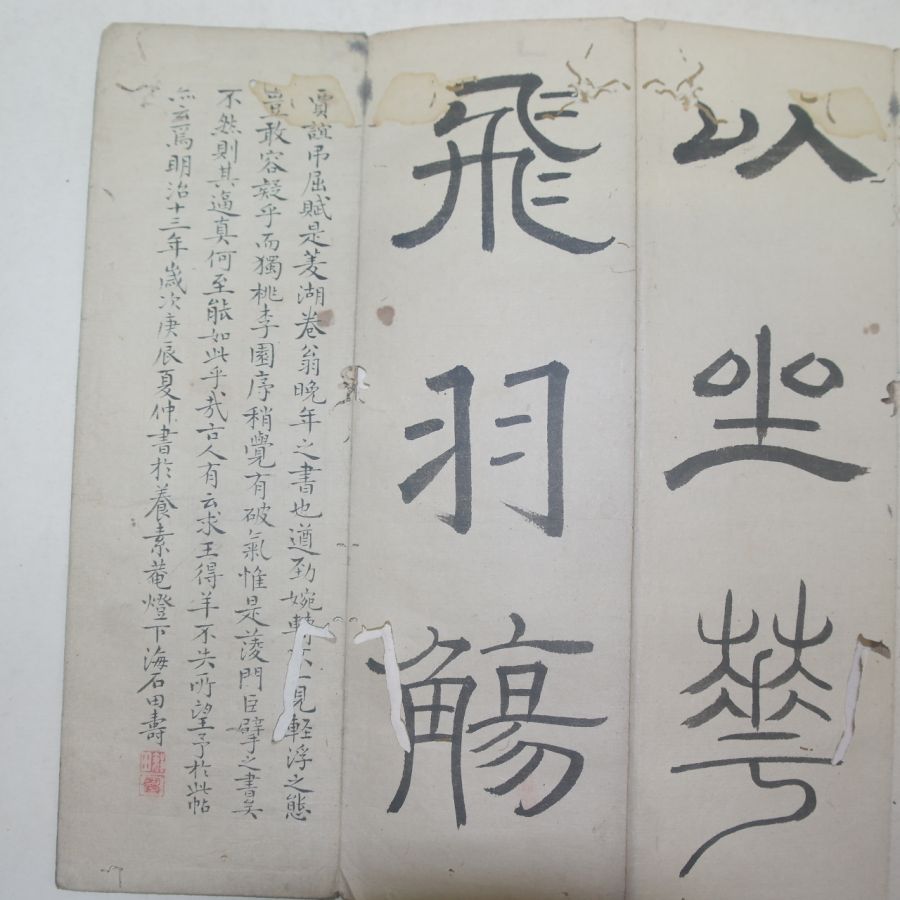 以坐華
飛羽觴
賈誼吊屈賦是菱湖卷翁晚年之書也遒勁婉轉不見輕浮之態
豈敢容疑乎而獨桃李園序稍覺有破氣惟是菱門巨擘之書矣
不然則其逼真何至能如此乎哉古人有云求王得羊不失所望予於此帖
亦云爲明治十三年歲次庚辰夏仲書於養素菴燈下海石田壽